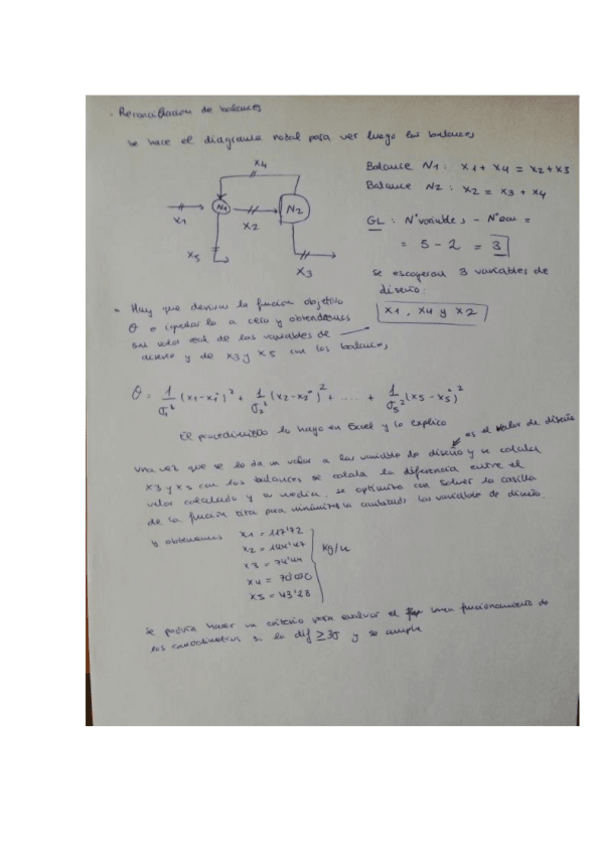 Reconciliación de balances
Se hace el diagrama nodal para ver luego los balances
x4
N1
N2
x1
x2
x5
x3
Balance N1: x1 + x4 = x2 + x3
Balance N2: x2 = x3 + x4
GL: Nº variables - Nº ecu =
= 5 - 2 = 3
Se escogeran 3 variables de
diseño:
x1, x4 y x2
Hay que derivar la función objetivo
θ e igualarla a cero y obtendremos
valor real de las variables de
diseño y de x3 y x5 con los balances
θ = 1/σ1² (x1-x1*)² + 1/σ2² (x2-x2*)² + ..... + 1/σ5² (x5-x5*)²
El procedimiento lo hago en Excel y lo explico
es el valor de diseño
Una vez que se le da un valor a las variables de diseño y se calcula
x3 y x5 con los balances se calcula la diferencia entre el
valor calculado y su media, se optimiza con solver la casilla
de la función tita para minimizarla cambiando las variables de diseño.
y obtenemos x1 = 117'72
x2 = 144'47
x3 = 74'44
x4 = 70'00
x5 = 43'28
kg/h
Se podría hacer un criterio para evaluar el buen funcionamiento de
los si la dif ≥ 3σ y se cumple